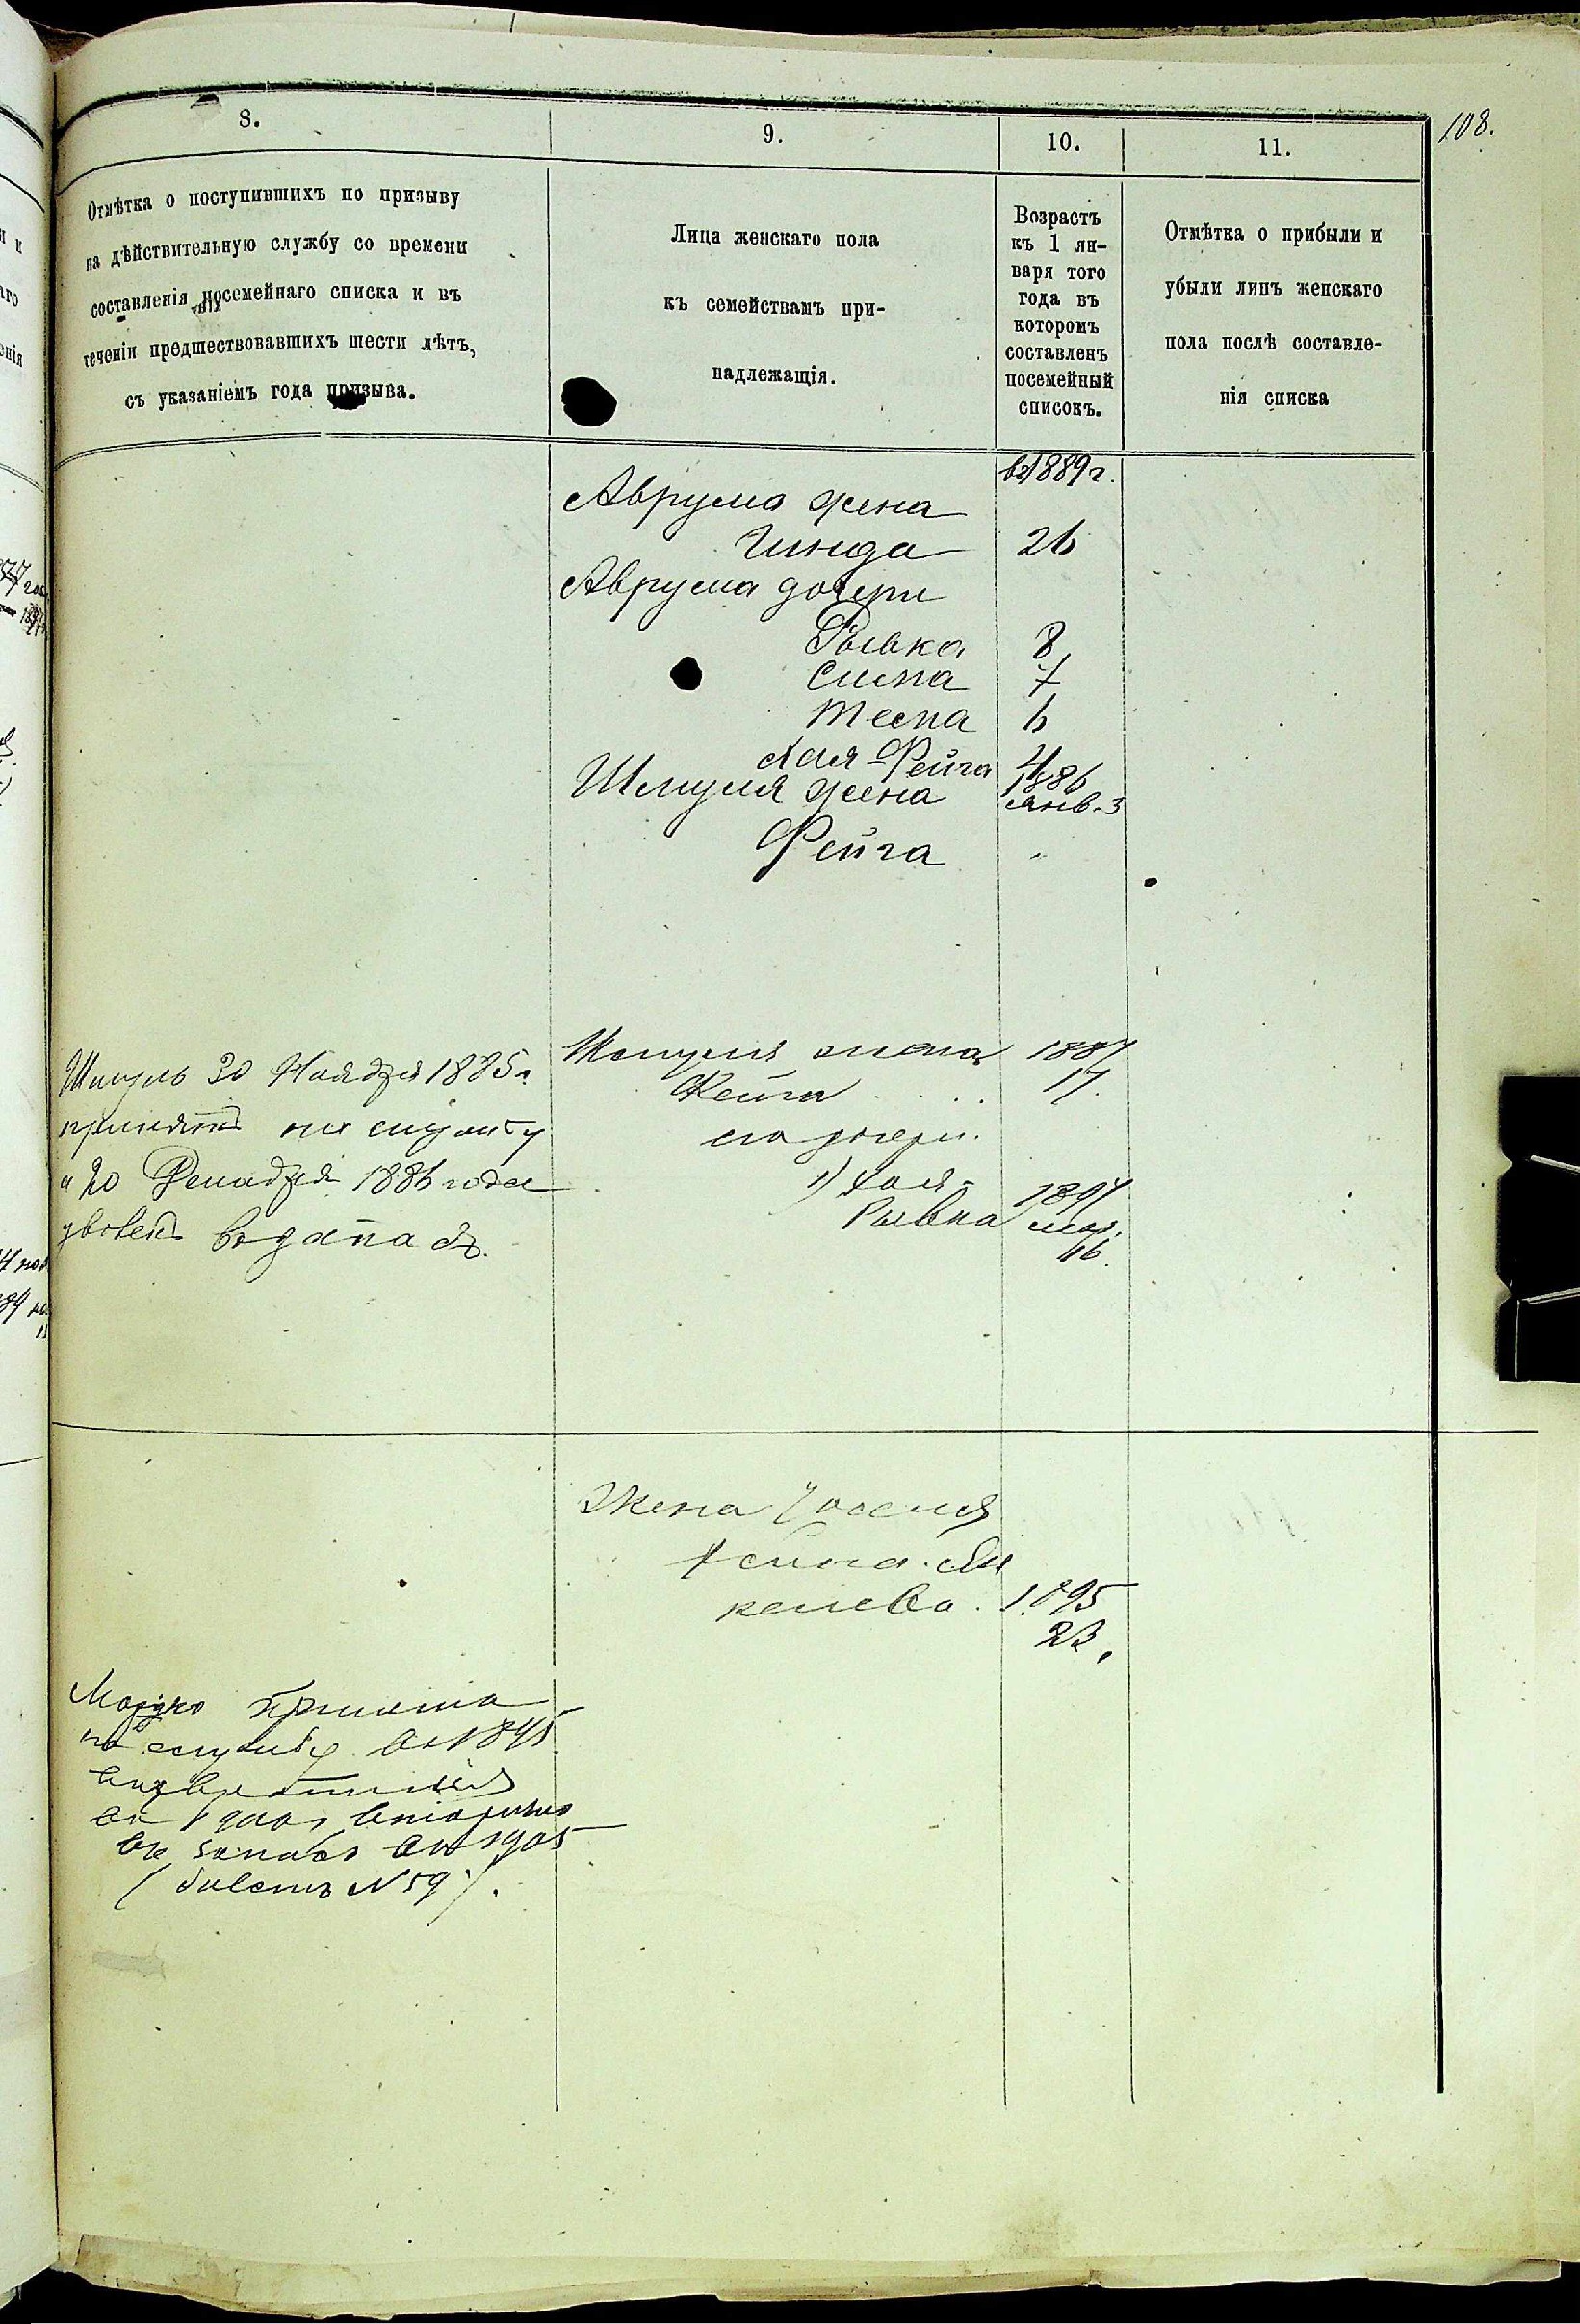 108.
8.
9.
10.
11.
Отмѣтка о поступившихъ по призыву
на дѣйствительную службу со времени
составленія посемейнаго списка и въ
теченіи предшествовавшихъ шести лѣтъ,
съ указаніемъ года призыва.
Лица женскаго пола
къ семействамъ при-
надлежащія.
Возрастъ
къ 1 ян-
варя того
года въ
которомъ
составленъ
посемейный
списокъ.
Отмѣтка о прибыли и
убыли лицъ женскаго
пола послѣ составле-
нія списка
въ 1889 г.
Аврума жена
Гинда 26
Аврума дочери
Рывка 8
Сипа 7
Теспа 6
Хая-Фейга 4
Шмуля жена 1886
янв. 3
Фейга "
Шмуль 30 Ноября 1885 г.
принятъ на службу
и 20 Декабря 1886 года
уволенъ въ запасъ.
Шмуля жена 1887
Фейга . . . . 17.
его дочери.
1) Хая-
Рывка 1897
мар.
16.
Жена
1895
23.
Мордко
на службу въ 1895
въ запасъ въ 1905
(билетъ № 59).